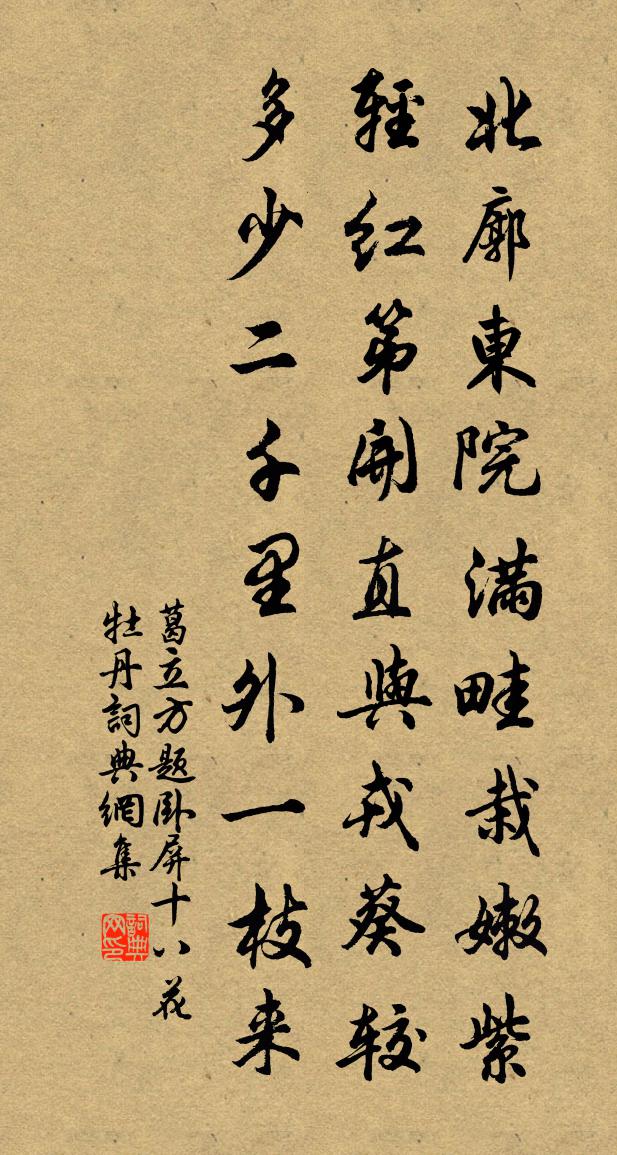 北廓東院滿畦栽嫩紫
輕紅第開直與戎葵較
多少二千里外一枝来
葛立方題卧屏十八花
牡丹詞典網集
詞典网印